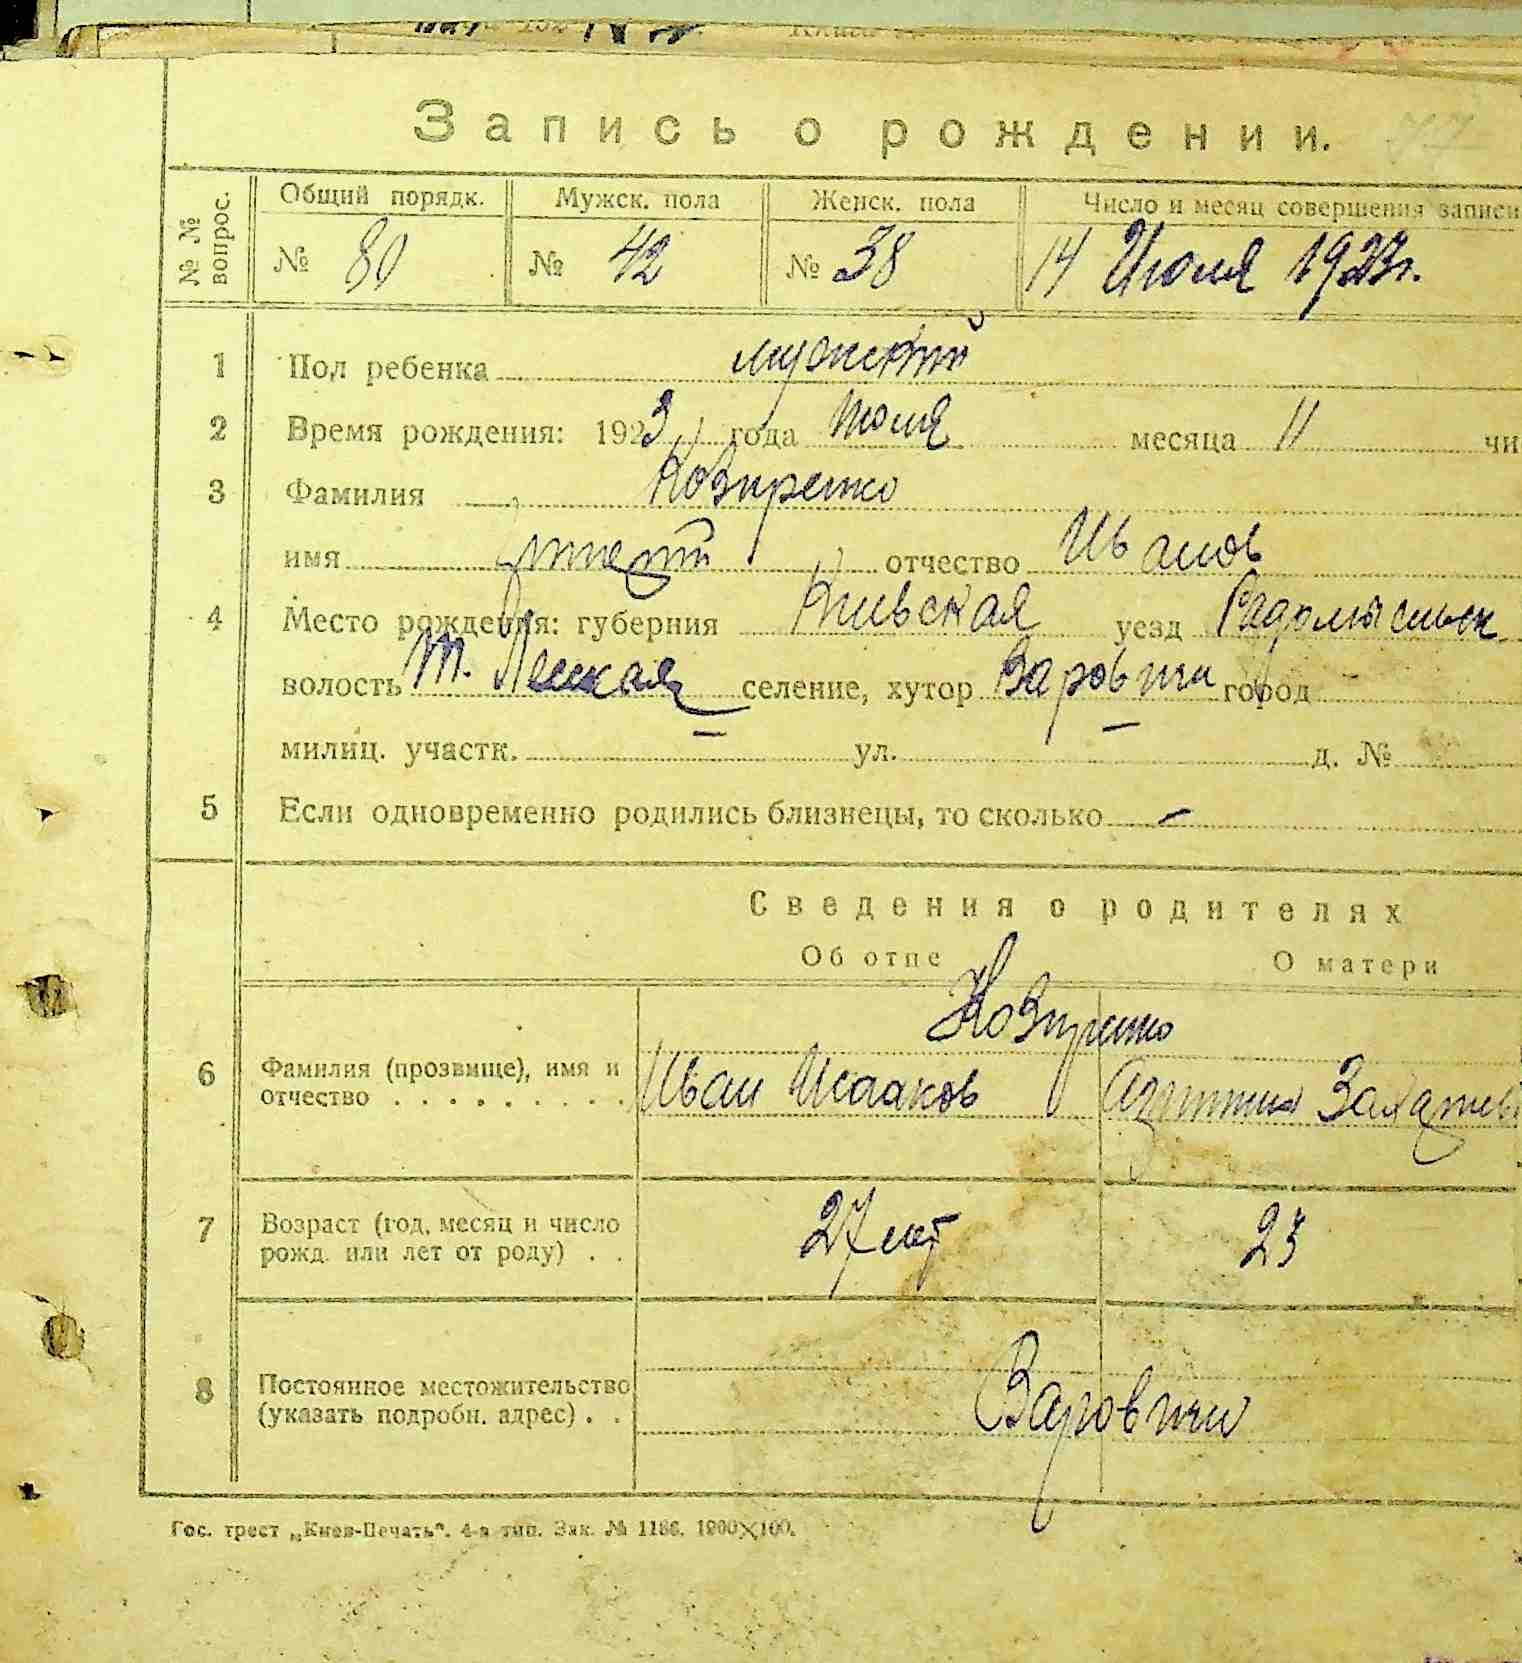 Запись о рождении.
№№ вопрос.
Общий порядк. Мужск. пола Женск. пола Число и месяц совершения записи
№ 80 № 42 № 38 14 Июля 1923г.
1 Пол ребенка мужской
2 Время рождения: 1923 года Июля месяца 11 чи
3 Фамилия
имя отчество Иванов
4 Место рождения: губерния Киевская уезд Радомысльск
волость селение, хутор Варовичи город
милиц. участк. ул. д. №
5 Если одновременно родились близнецы, то сколько —
Сведения о родителях
Об отце О матери
6 Фамилия (прозвище), имя и
отчество . . . . . . . . . Иван Исааков
7 Возраст (год, месяц и число
рожд. или лет от роду) . . 27 лет 23
8 Постоянное местожительство
(указать подробн. адрес) . . Варовичи
Гос. трест „Киев-Печать“. 4-я тип. Зак. № 1186. 1000×100.